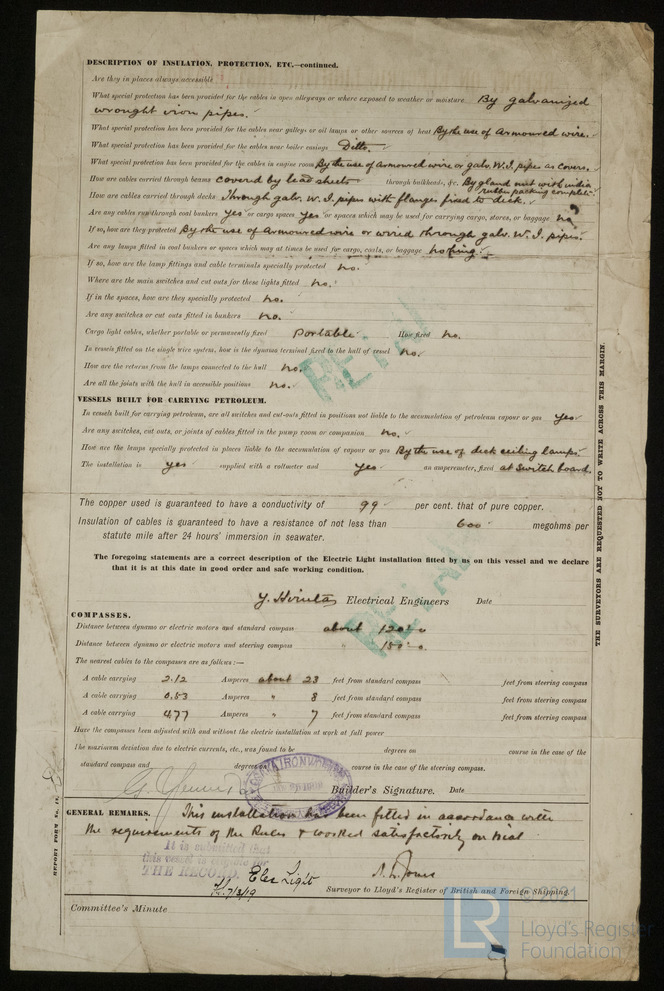 DESCRIPTION OF INSULATION, PROTECTION, ETC.—continued.
Are they in places always accessible
What special protection has been provided for the cables in open alleyways or where exposed to weather or moisture By galvanized
wrought iron pipes.
What special protection has been provided for the cables near galleys or oil lamps or other sources of heat By the use of Armoured wire.
What special protection has been provided for the cables near boiler casings Ditto.
What special protection has been provided for the cables in engine room By the use of Armoured wire or galv. W.I. pipe as covers.
How are cables carried through beams covered by lead sheets through bulkheads, &c. By gland nut with india
rubber packing complete.
How are cables carried through decks Through galv. W. I. pipes with flange fixed to deck.
Are any cables run through coal bunkers yes or cargo spaces yes or spaces which may be used for carrying cargo, stores, or baggage no
If so, how are they protected By the use of Armoured wire or wired through galv. W. I. pipes.
Are any lamps fitted in coal bunkers or spaces which may at times be used for cargo, coals, or baggage nothing.
If so, how are the lamp fittings and cable terminals specially protected no.
Where are the main switches and cut outs for these lights fitted no.
If in the spaces, how are they specially protected no.
Are any switches or cut outs fitted in bunkers no.
Cargo light cables, whether portable or permanently fixed Portable How fixed no.
In vessels fitted on the single wire system, how is the dynamo terminal fixed to the hull of vessel no.
How are the returns from the lamps connected to the hull no.
Are all the joints with the hull in accessible positions no.
VESSELS BUILT FOR CARRYING PETROLEUM.
In vessels built for carrying petroleum, are all switches and cut-outs fitted in positions not liable to the accumulation of petroleum vapour or gas yes
Are any switches, cut outs, or joints of cables fitted in the pump room or companion no.
How are the lamps specially protected in places liable to the accumulation of vapour or gas By the use of deck ceiling lamps.
The installation is yes supplied with a voltmeter and yes an amperemeter, fixed at Switch board.
The copper used is guaranteed to have a conductivity of 99 per cent. that of pure copper.
Insulation of cables is guaranteed to have a resistance of not less than 600 megohms per
statute mile after 24 hours' immersion in seawater.
The foregoing statements are a correct description of the Electric Light installation fitted by us on this vessel and we declare
that it is at this date in good order and safe working condition.
Electrical Engineers Date
COMPASSES.
Distance between dynamo or electric motors and standard compass about 120'-0
Distance between dynamo or electric motors and steering compass " 150'-0
The nearest cables to the compasses are as follows:—
A cable carrying 2.12 Amperes about 23 feet from standard compass feet from steering compass
A cable carrying 0.53 Amperes " 8 feet from standard compass feet from steering compass
A cable carrying 4.77 Amperes " 7 feet from standard compass feet from steering compass
Have the compasses been adjusted with and without the electric installation at work at full power
The maximum deviation due to electric currents, etc., was found to be degrees on course in the case of the
standard compass and degrees on course in the case of the steering compass.
Builder's Signature. Date
GENERAL REMARKS. This installation has been fitted in accordance with
the requirements of the Rules & worked satisfactorily on trial
It is submitted that
this vessel is eligible for
THE RECORD. Elec Light
7/3/19
Surveyor to Lloyd's Register of British and Foreign Shipping.
Committee's Minute
THE SURVEYORS ARE REQUESTED NOT TO WRITE ACROSS THIS MARGIN.
© 2021
LR
Lloyd's Register
Foundation